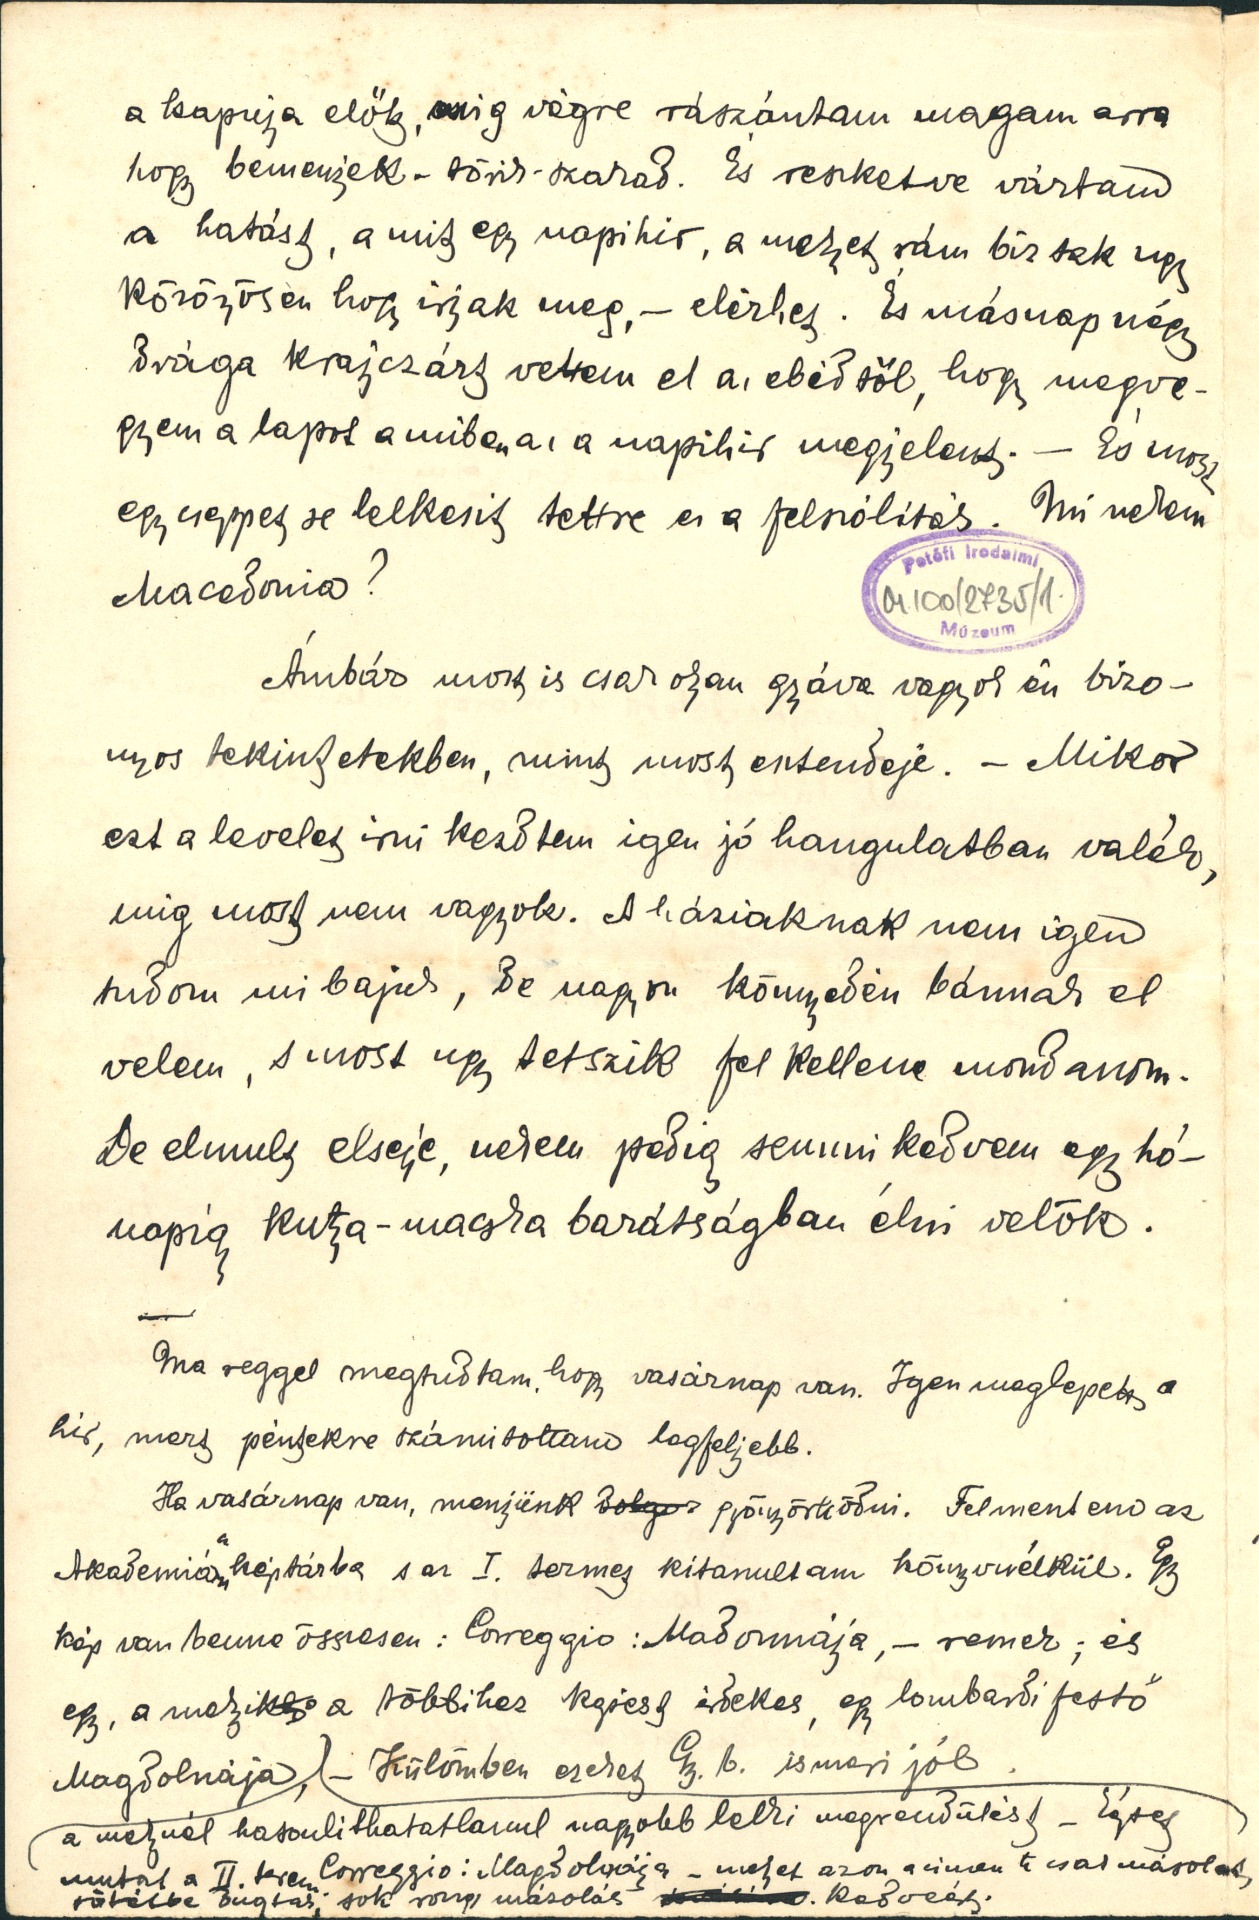 a kapuja előtt, mig végre rászántam magam arra
hogy bemenjek - törik-szakad. És reszketve vártam
a hatást, amit egy napihir, a melyet rám biztak ugy
könözösen hogy irjak meg, – elérhet. És másnap négy
drága krajczárt vettem el az ebédtől, hogy megve-
gyem a lapot amiben az a napihir megjelent. — És most
egy cseppet se lelkesit tettre ez a felszólitás. Mi nekem
Macedonia?
Petőfi Irodalmi
100/2735/1.
Múzeum
Ámbár most is csak olyan gyáva vagyok én bizo-
nyos tekintetekben, mint most esztendeje. – Mikor
ezt a levelet irni kezdtem igen jó hangulatban valék,
mig most nem vagyok. A háziaknak nem igen
tudom mi bajuk, de nagyon könnyedén bánnak el
velem, s most ugy tetszik fel kellene mondanom.
De elmult elseje, nekem pedig semmi kedvem egy hó-
napig kutya-macska barátságban élni velök.
Ma reggel megtudtam, hogy vasárnap van. Igen meglepett a
hir, mert péntekre számitottam legfeljebb.
Ha vasárnap van, menjünk gyönyörködni. Felmentem az
Akademiára a képtárba s az I. termet kitanultam könyvnélkül. Egy
kép van benne összesen: Correggio: Madonnája, – remek; és
egy, a melyik a többihez képest érdekes, egy lombardi festő
Magdolnája, – Különben ezeket Gy. b. ismeri jól.
a melynél hasonlithatatlanul nagyobb lelki megrendülést –
mutat a II. terem Correggio: Magdolnája – melyet azon a cimen csak másolat
sötétbe dugtak; sok rongy másolás Kedveért.